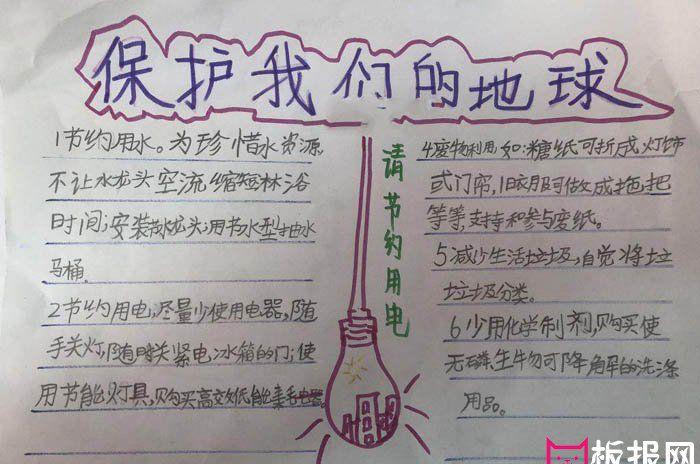 保护我们的地球
1节约用水。为珍惜水资源,
不让水龙头空流缩短淋浴
时间;安装水龙头;用节水型抽水
马桶.
2节约用电;尽量少使用电器,随
手关灯,随时关紧电冰箱的门;使
用节能灯具,购买高效低能耗电器
请节约用电
4废物利用,如:糖纸可折成灯饰
或门帘,旧衣服可做成拖把
等等,支持和参与废纸。
5减少生活垃圾,自觉将垃
垃圾分类。
6少用化学制剂,购买使
无磷、生物可降解的洗涤
用品。
板报网